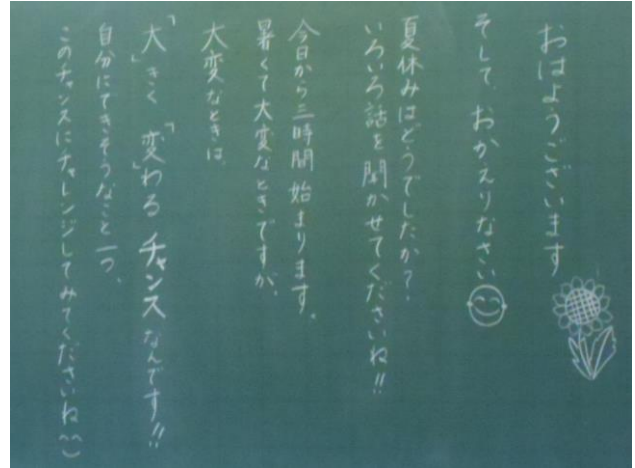 おはようございます
そして、おかえりなさい
夏休みはどうでしたか？
いろいろ話を聞かせてくださいね!!
今日から三時間始まります。
暑くて大変なときですが、
大変なときは、
「大」きく「変」わるチャンスなんです!!
自分にできそうなこと一つ、
このチャンスにチャレンジしてみてくださいね^^)